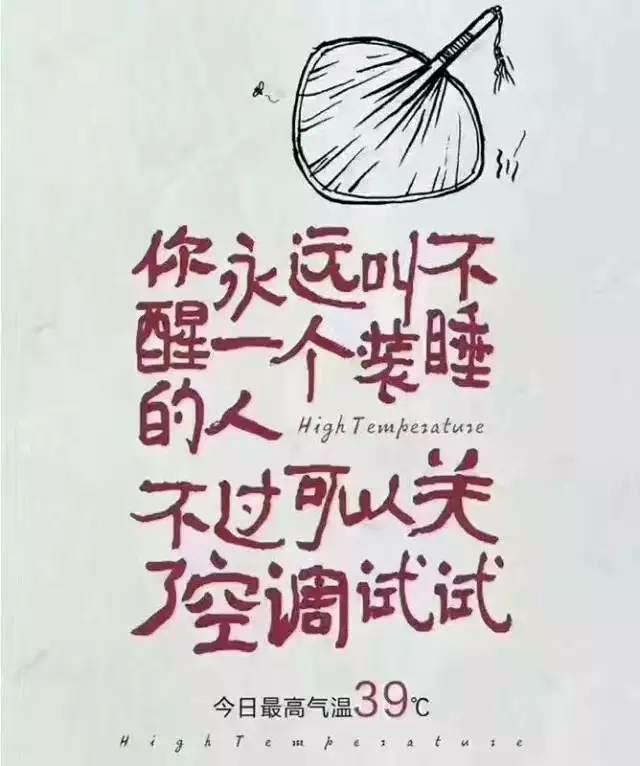 你永远叫不
醒一个装睡
的人
High Temperature
不过可以关
了空调试试
今日最高气温39℃
High Temperature